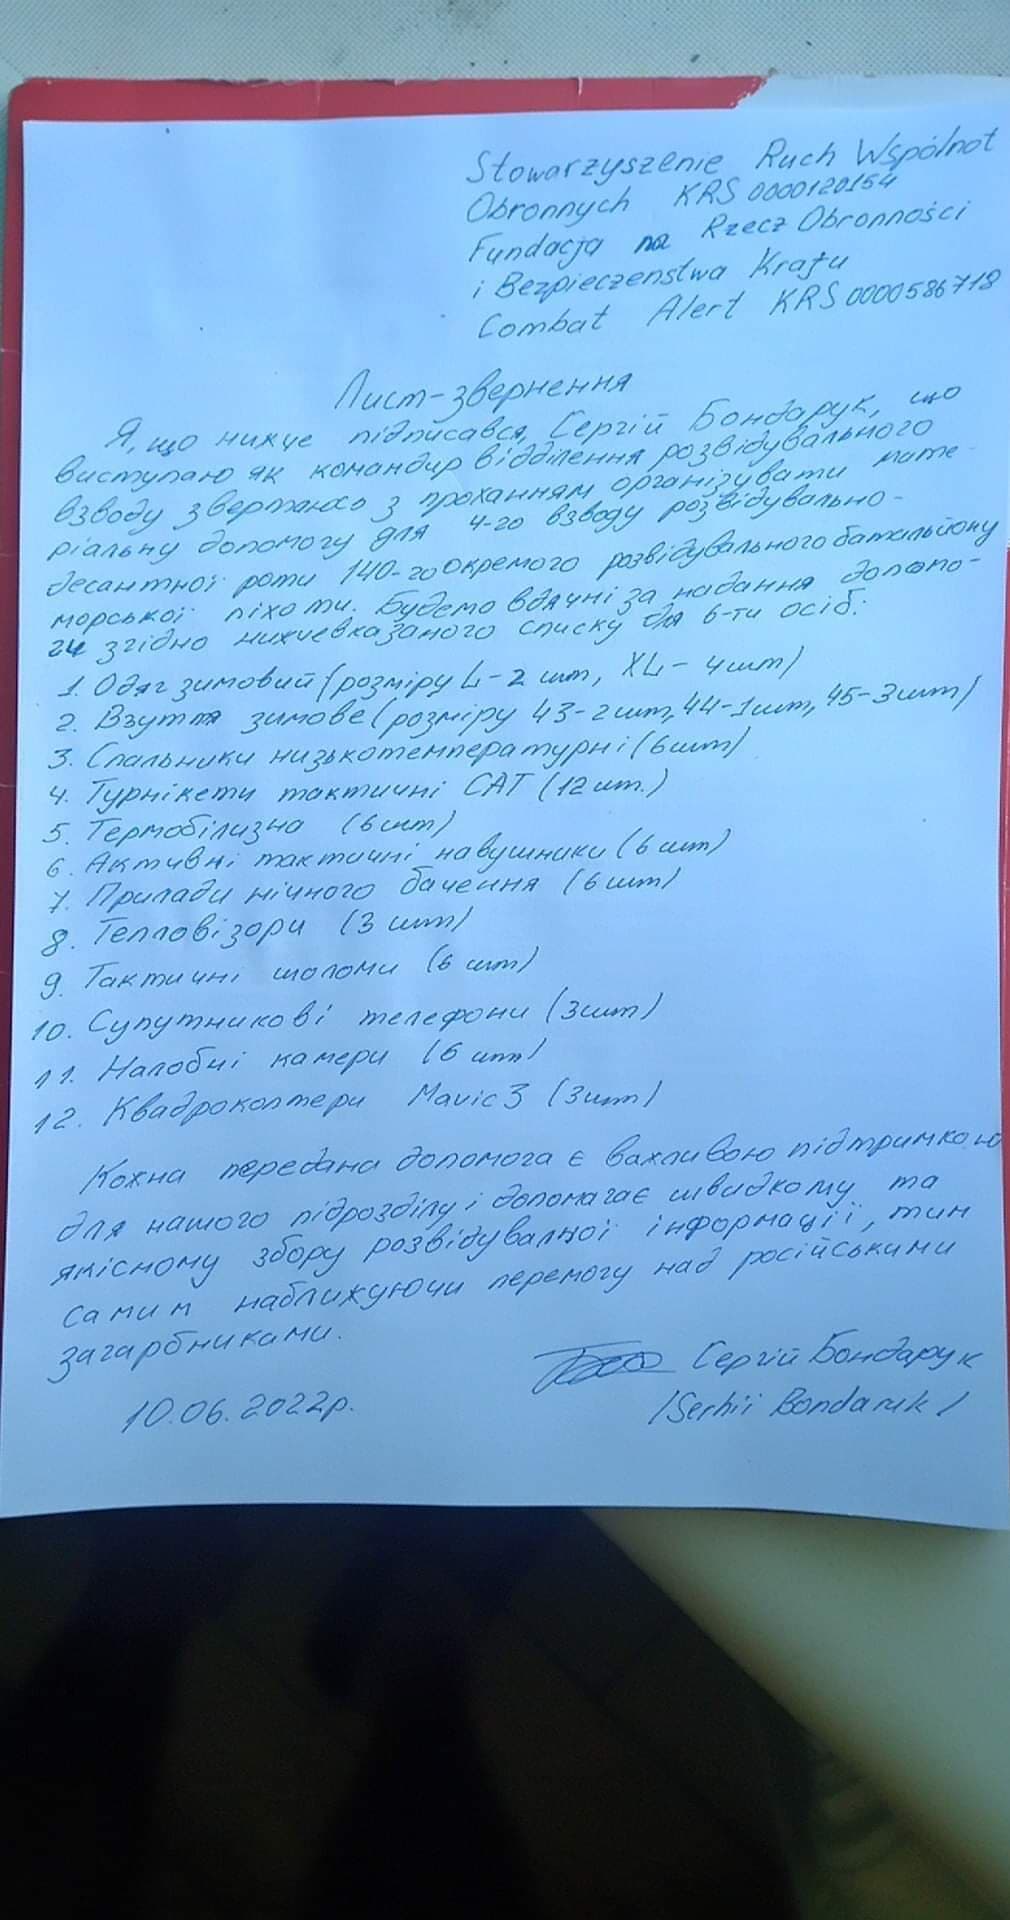 Stowarzyszenie Ruch Wspólnot
Obronnych KRS 0000120154
Fundacja na Rzecz Obronności
i Bezpieczenstwa Kraju
Combat Alert KRS 0000586718
Лист-звернення
Я, що нижче підписався, Сергій Бондарук, що
виступаю як командир відділення розвідувального
взводу звертаюсь з проханням організувати мате-
ріальну допомогу для 4-го взводу розвідувально-
десантної роти 140-го окремого розвідувального батальйону
морської піхоти. Будемо вдячні за надання допомо-
ги згідно нижчевказаного списку для 6-ти осіб:
1. Одяг зимовий (розміру L-2 шт, XL-4шт)
2. Взуття зимове (розміру 43-2шт, 44-1шт, 45-3шт)
3. Спальники низькотемпературні (6шт)
4. Турнікети тактичні CAT (12 шт.)
5. Термобілизна (6шт)
6. Активні тактичні навушники (6 шт)
7. Прилади нічного бачення (6шт)
8. Тепловізори (3 шт)
9. Тактичні шоломи (6 шт)
10. Супутникові телефони (3шт)
11. Налобні камери (6 шт)
12. Квадрокоптери Mavic 3 (3шт)
Кожна передана допомога є важливою підтримкою
для нашого підрозділу і допомагає швидкому та
якісному збору розвідувалної інформації, тим
самим наближуючи перемогу над російськими
загарбниками.
Сергій Бондарук
10.06.2022р.
/Serhii Bondaruk/